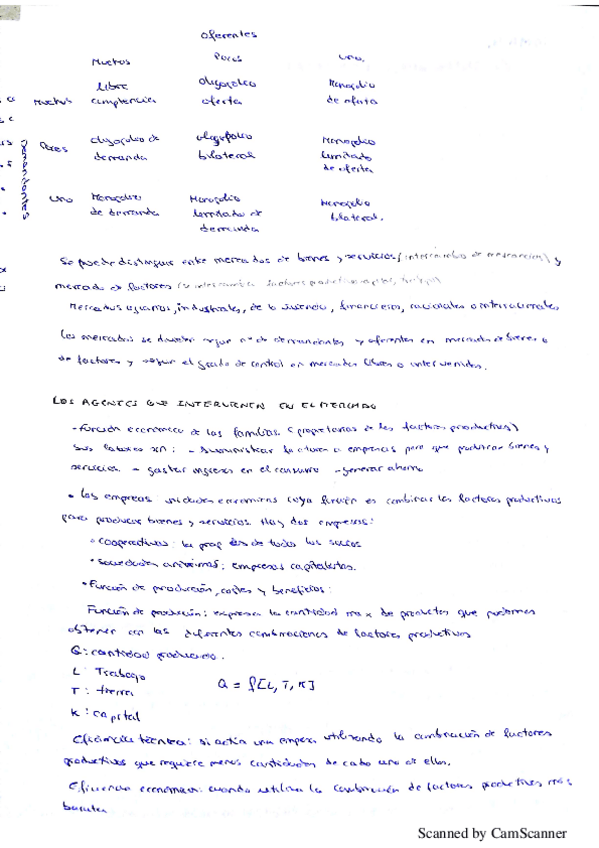 Oferentes
Muchos Pocos uno.
Libre oligopolio Monopolio
Muchos competencia oferta de oferta
Demandantes
Pocos oligopolio de oligopolio Monopolio
demanda bilateral limitado
de oferta
uno Monopolio Monopolio Monopolio
de demanda limitado de bilateral.
demanda
Se puede distinguir entre mercados de bienes y servicios (intercambio de) y
mercado de factores
Mercados agrarios, industriales, de financieros, nacionales o internacionales
Los mercados se dividen según nº de demandantes y oferentes en mercado de bienes o
de factores y según el grado de control en mercados libres o intervenidos.
LOS AGENTES QUE INTERVIENEN EN EL MERCADO
- Función económica de las familias (propietarias de los factores productivos)
sus: - suministrar factores a empresas para que produzcan bienes y
servicios. - gastar ingresos en el consumo - generar ahorro
• Las empresas: unidades económicas cuya función es combinar los factores productivos
para producir bienes y servicios. Hay dos empresas:
• cooperativas: la prop es de todos los socios
• Sociedades anónimas: empresas capitalistas.
• Función de producción, costes y beneficios:
Función de producción: expresa la cantidad max de productos que podamos
obtener con las diferentes combinaciones de factores productivos
Q: cantidad producida.
L: Trabajo
T: tierra Q = f[L, T, K]
K: capital
Eficiencia técnica: si actúa una empresa utilizando la combinación de factores
productivos que requiere menos cantidades de cada uno de ellos.
Eficiencia económica: cuando utiliza la combinación de factores productivos más
barata
Scanned by CamScanner